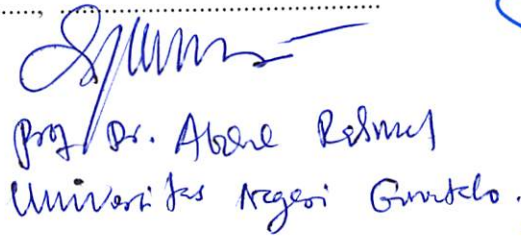 Prof Dr. Abdul Rahmat
Universitas Negeri Gorontalo.